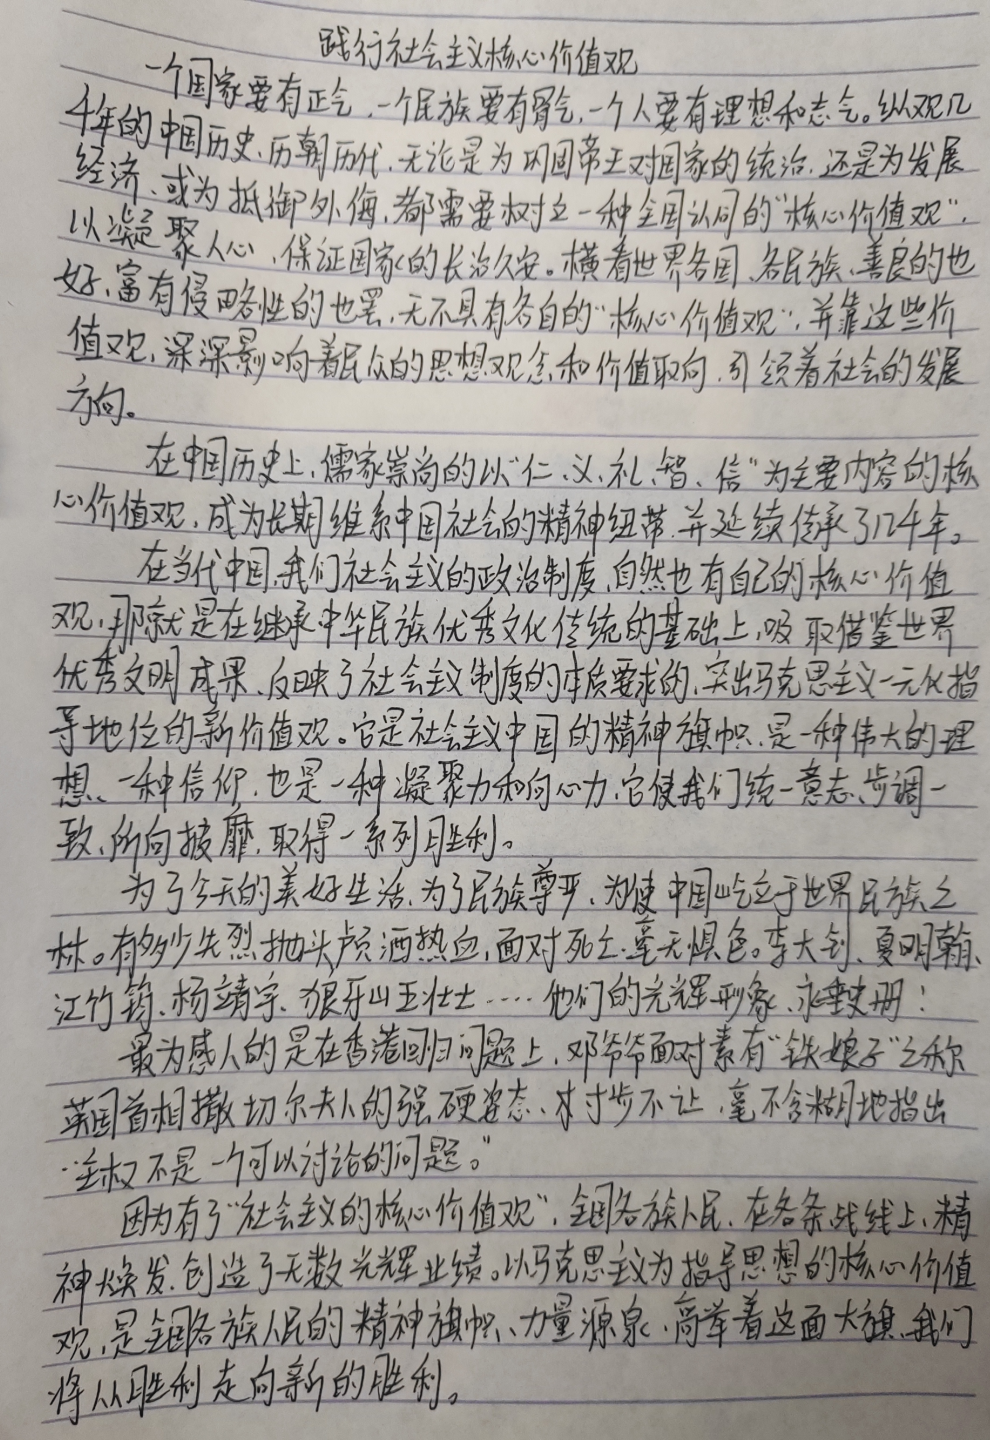 践行社会主义核心价值观
一个国家要有正气,一个民族要有骨气,一个人要有理想和志气。纵观几
千年的中国历史、历朝历代,无论是为巩固帝王对国家的统治,还是为发展
经济、或为抵御外侮,都需要树立一种全国认同的“核心价值观”,
以凝聚人心,保证国家的长治久安。横看世界各国、各民族、善良的也
好,富有侵略性的也罢,无不具有各自的“核心价值观”,并靠这些价
值观,深深影响着民众的思想观念和价值取向,引领着社会的发展
方向。
在中国历史上,儒家崇尚的以“仁、义、礼、智、信”为主要内容的核
心价值观,成为长期维系中国社会的精神纽带,并延续传承了几千年。
在当代中国,我们社会主义的政治制度,自然也有自己的核心价值
观,那就是在继承中华民族优秀文化传统的基础上,吸取借鉴世界
优秀文明成果、反映了社会主义制度的本质要求的,突出马克思主义一元化指
导地位的新价值观。它是社会主义中国的精神旗帜,是一种伟大的理
想、一种信仰,也是一种凝聚力和向心力,它使我们统一意志、步调一
致、所向披靡,取得一系列胜利。
为了今天的美好生活,为了民族尊严,为使中国屹立于世界民族之
林。有多少先烈抛头颅洒热血,面对死亡,毫无惧色。李大钊、夏明翰、
江竹筠、杨靖宇、狼牙山五壮士……他们的光辉形象,永垂史册!
最为感人的是在香港回归问题上,邓爷爷面对素有“铁娘子”之称
英国首相撒切尔夫人的强硬姿态、寸步不让,毫不含糊地指出
“主权不是一个可以讨论的问题。”
因为有了“社会主义的核心价值观”,全国各族人民,在各条战线上,精
神焕发,创造了无数光辉业绩。以马克思主义为指导思想的核心价值
观,是全国各族人民的精神旗帜、力量源泉,高举着这面大旗,我们
将从胜利走向新的胜利。